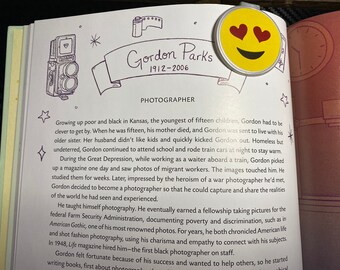 Gordon Parks
1912-2006
PHOTOGRAPHER
Growing up poor and black in Kansas, the youngest of fifteen children, Gordon had to be
clever to get by. When he was fifteen, his mother died, and Gordon was sent to live with his
older sister. Her husband didn't like kids and quickly kicked Gordon out. Homeless but
undeterred, Gordon continued to attend school and rode train cars at night to stay warm.
During the Great Depression, while working as a waiter aboard a train, Gordon picked
up a magazine one day and saw photos of migrant workers. The images touched him. He
studied them for weeks. Later, impressed by the heroism of a war photographer he'd met,
Gordon decided to become a photographer so that he could capture and share the realities
of the world he had seen and experienced.
He taught himself photography. He eventually earned a fellowship taking pictures for the
federal Farm Security Administration, documenting poverty and discrimination, such as in
American Gothic, one of his most renowned photos. For years, he both chronicled American life
and shot fashion photography, using his charisma and empathy to connect with his subjects.
In 1948, Life magazine hired him—the first black photographer on staff.
Gordon felt fortunate because of his success and wanted to help others, so he started
writing books, first about